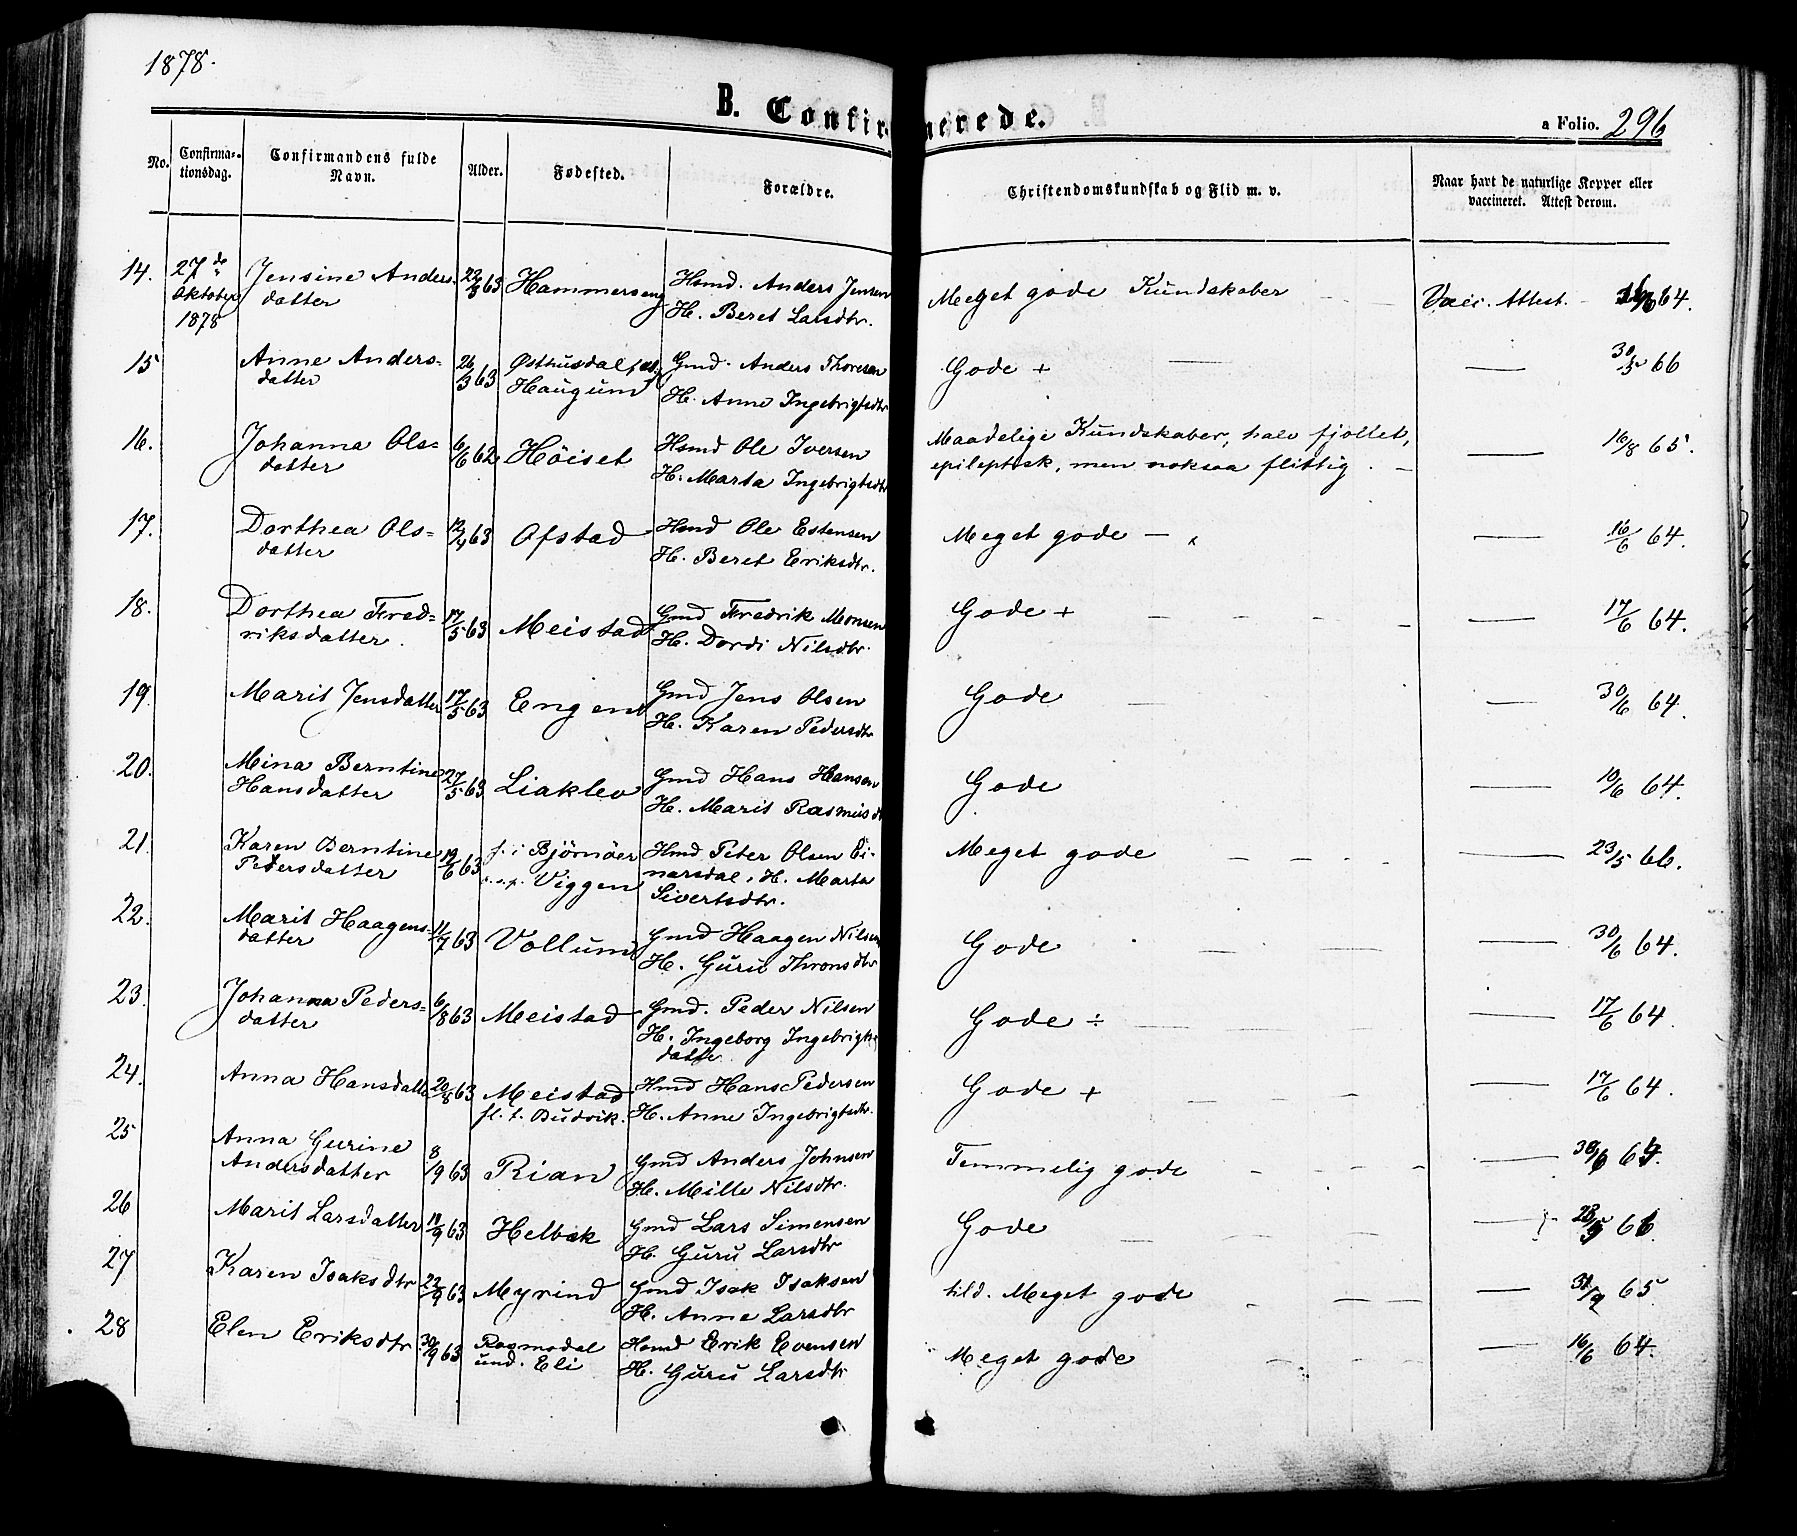 1878.
B. Confirmerede.
a Folio. 296
No.
Confirmationsdag.
Confirmandens fulde Navn.
Alder.
Fødested.
Forældre.
Christendomskundskab og Flid m. v.
Naar havt de naturlige Kopper eller vaccineret. Attest derom.
14. 27de Jensine Anders- 22/8 63 Hammerseng Hsmd. Anders Jensen Meget gode Kundskaber — — Vacc. Attest. — 64.
Oktober datter H. Beret Larsdtr.
1878
15 Anne Anders- 26/3 63 Østhusdal Gmd. Anders Thoresen Gode + — — 30/5 66
datter Haugum H. Anne Ingebrigtsdtr
16. Johanna Ols- 6/6 62 Höiset Hsmd Ole Iversen Maadelige Kundskaber, halv fjollet, — 16/8 65.
datter H. Marta Ingebrigtsdtr epileptisk, men noksaa flittig. —
17. Dorthea Ols- 12/4 63 Ofstad Hsmd Ole Estensen Meget gode — — 16/6 64.
datter H. Beret Eriksdtr.
18. Dorthea Fred- 17/5 63 Meistad Gmd Fredrik Monsen Gode + — — — — — 17/6 64.
riksdatter. H. Dordi Nilsdtr.
19. Marit Jensdatter 17/5 63 Engen Gmd Jens Olsen Gode — — 30/6 64.
H. Karen Pedersdtr
20. Mina Berntine 27/5 63 Liaklev Gmd Hans Hansen Gode — 10/6 64.
Hansdatter H. Marit Rasmusd
21. Karen Berntine 19/6 63 f. i Björnöer Hmd Peter Olsen Ei- Meget gode — — — — — 23/5 66.
Pedersdatter Viggen narsdal, H. Marta
Sivertsdtr.
22. Marit Haagens- 11/7 63 Vollum Gmd Haagen Nilsen Gode — — — — 30/6 64.
datter H. Guru Thronsdtr
23. Johanna Peders- 6/8 63 Meistad Gmd. Peder Nilsen Gode ÷ — — — 17/6 64.
datter H. Ingeborg Ingebrigts
datter
24. Anna Hansdatter 20/8 63 Meistad Hmd Hans Pedersen Gode + — — — — — 17/6 64.
fl. t. Budvik. H. Anne Ingebrigtsdtr.
25 Anna Gurine 8/9 63 Rian Gmd Anders Johnsen Temmelig gode — — — — — 64.
Andersdatter H. Mille Nilsdtr.
26 Marit Larsdatter 19/9 63 Helbæk Gmd Lars Simensen Gode — — — — — 66.
H. Guru Larsdtr
27 Karen Isaksdtr 22/9 63 Myrind Gmd Isak Isaksen tild. Meget gode — — — — 31/9 65
H. Anne Larsdtr
28 Elen Eriksdtr 30/9 63 Rosmodal Hsmd Erik Evensen Meget gode — — — — — 16/6 64.
und. Eli H. Guru Larsdtr